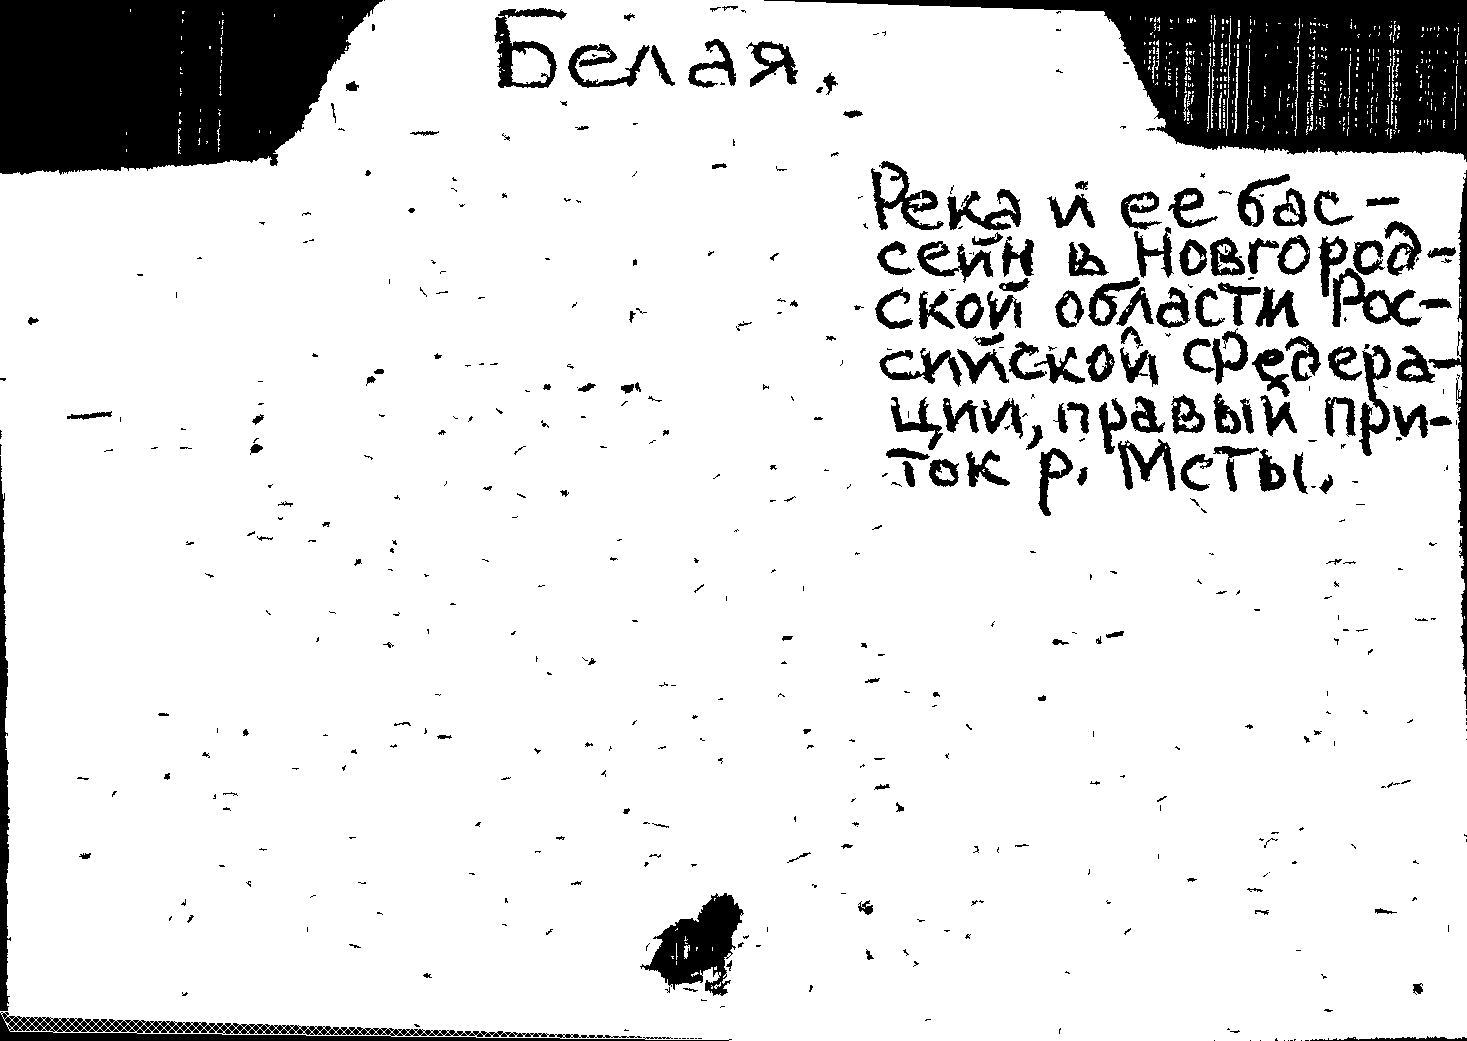 Белая.
Река и ее бас-
сейн в Новгород-
ской области Рос-
сийской Федера-
ции, правый при-
ток р. Мсты.